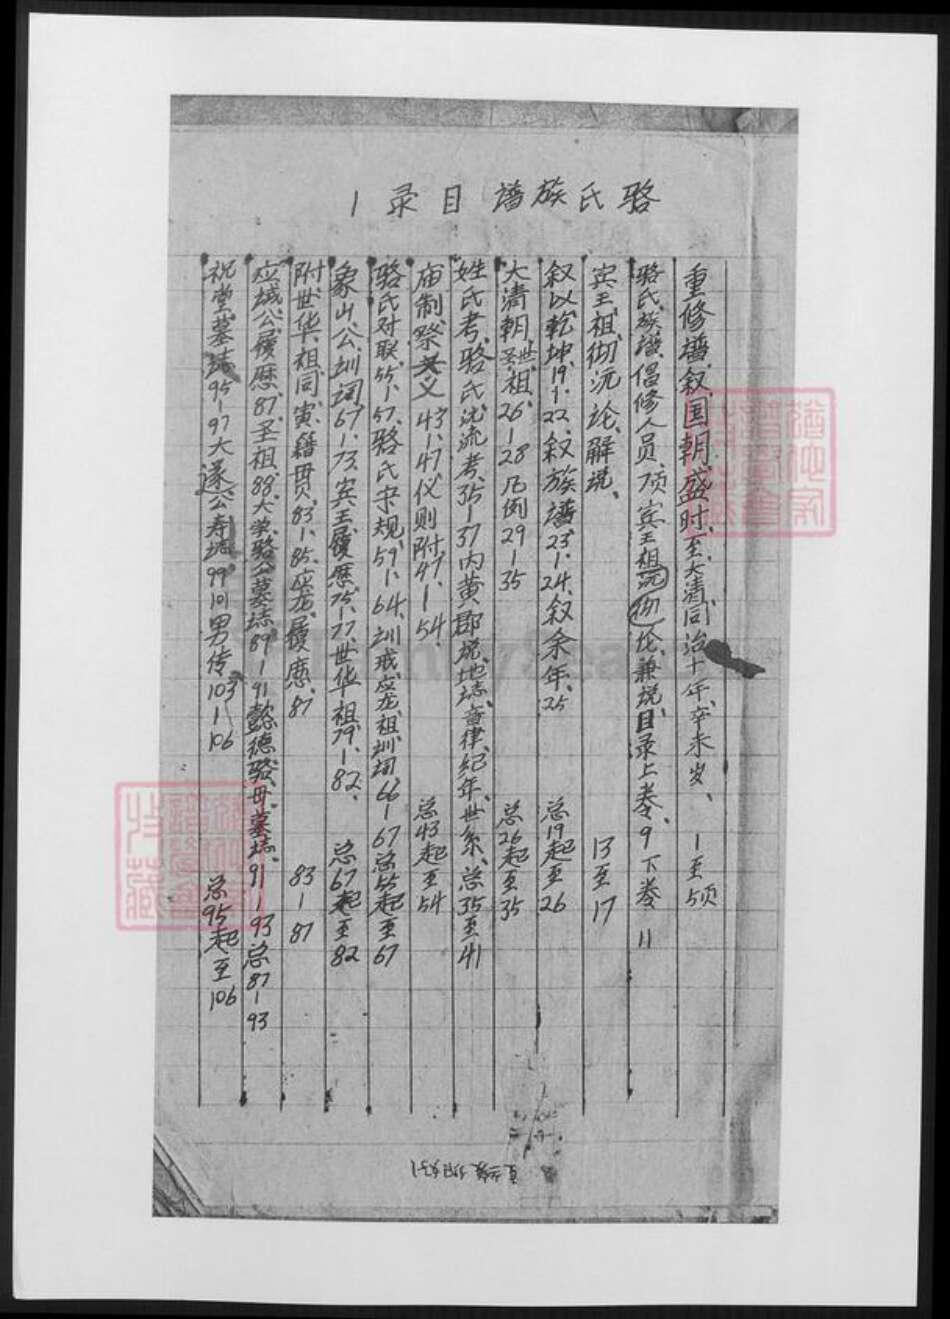 骆氏族谱目录1
重修谱叙国朝盛时、至大清同治十年辛未岁、1至5页
骆氏族谱、倡修人员、7页宾王祖沉彻论、兼说目录上卷、9下卷11
宾王、祖、彻沉论、解说、13至17
叙以乾坤、19-22、叙族谱、23-24、叙余年、25总19起至26
大清朝、圣世祖、26-28凡例29-35总26起至35
姓氏考、骆氏沈流考、35-37内黄郡说、地志、音律、纪年、世系、总35至41
庙制、祭义43-47、仪则附47-54、总43起至54
骆氏对联、55-57、骆氏宗规、59-64、训戒、应龙、祖、训词、66-67总55起至67
象山公、训词67-73、宾王、履历、75-77、世华祖、79-82、总67起至82
附世华、祖、同寅、籍贯、83-85、应龙、履历、87 83-87
应城公履历、87、圣祖、88、大学骆公墓志、89-91懿德骆母墓志、91-93总87-93
祝堂墓志95-97大遂公寿志、99-101男传103-106总95起至106